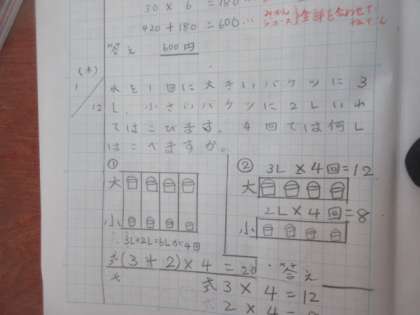 30 × 6 = 180
420 + 180 = 600
答え 600円
(木)
1/12 水を1回に大きいバケツに3
L、小さいバケツに2Lいれ
てはこびます。4回では何L
はこべますか。
① ②
3L×4回=12
大 大
2L×4回=8
小 小
3L+2L=5L 5L×4回
式(3+2)×4=20
答え
式 3×4=12
2×4=8